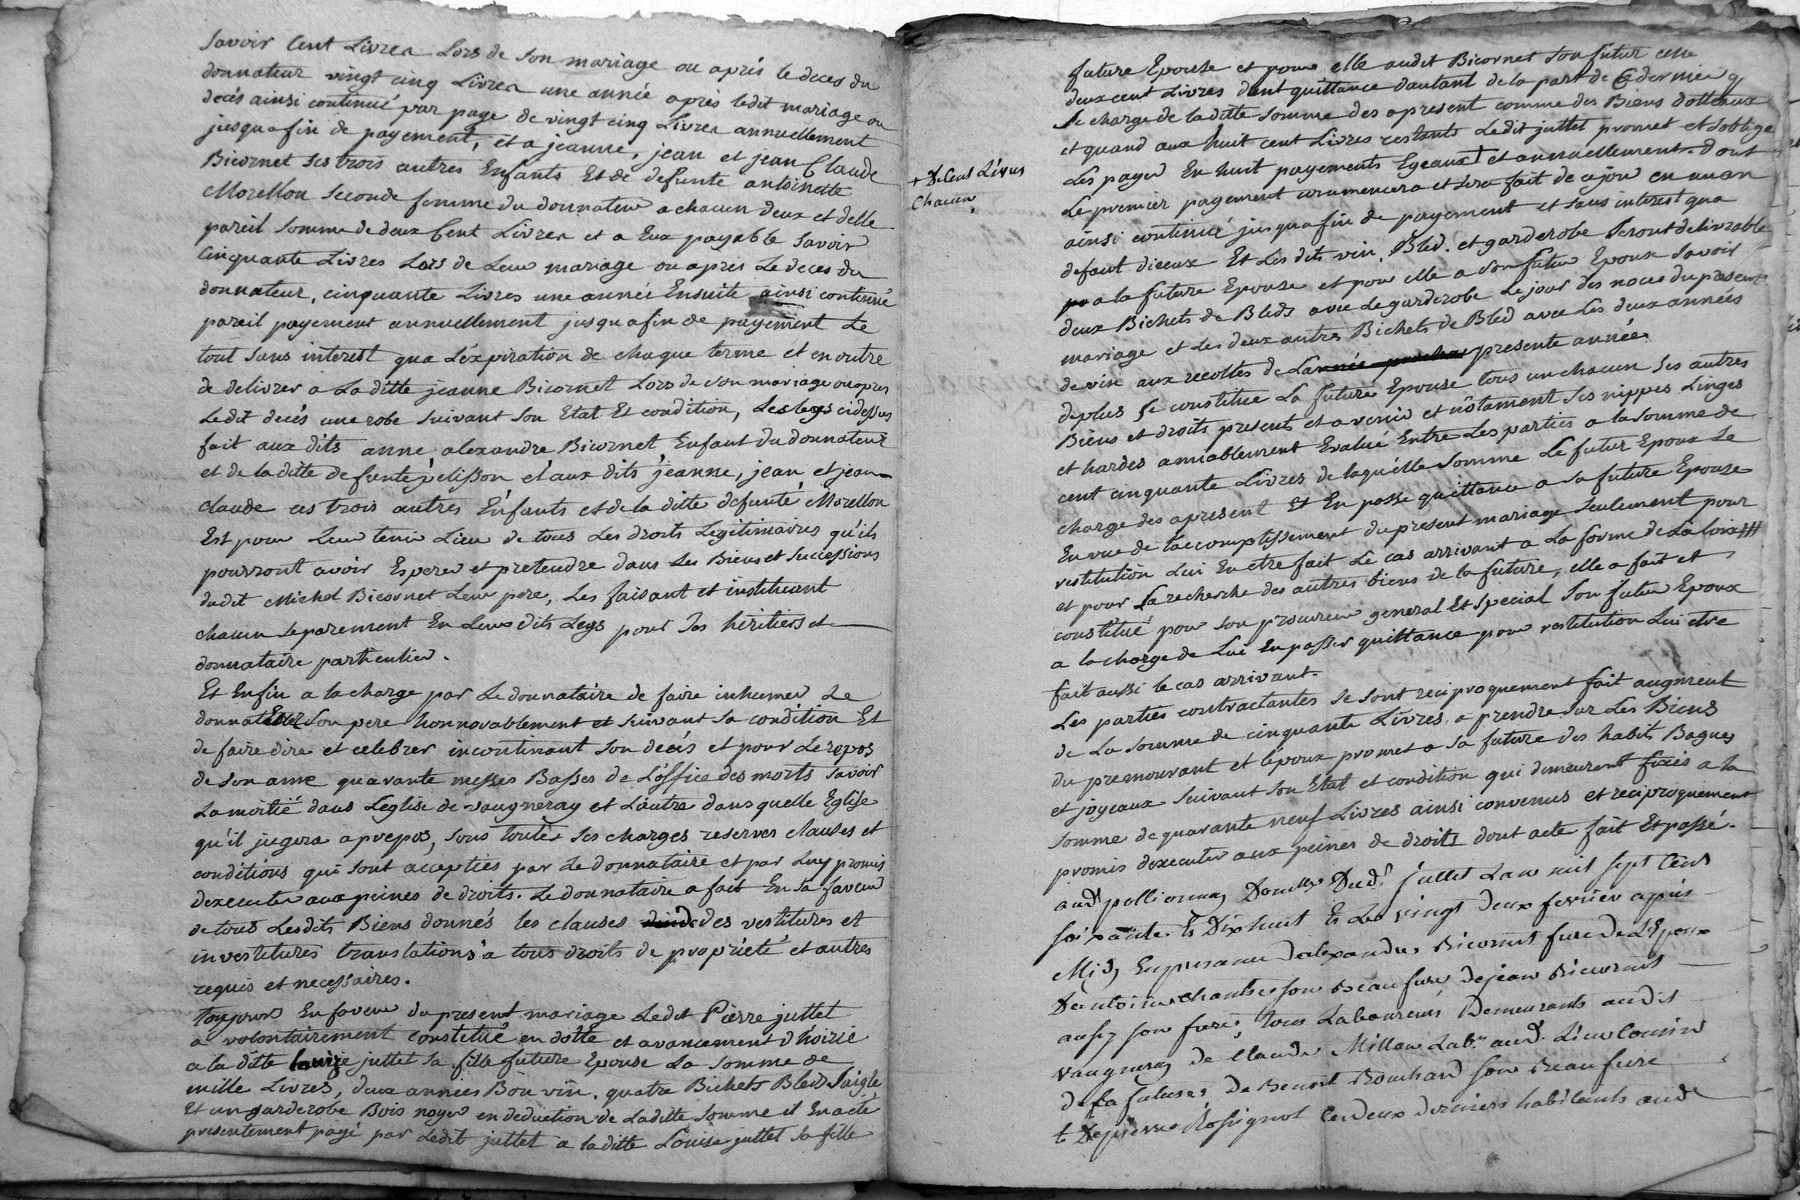 Savoir Cent Livres Lors de son mariage ou aprés le deces du
donnateur vingt cinq Livres une année aprés ledit mariage ou
decés ainsi continué par paye de vingt cinq Livres annuellement
jusqu a fin de payement, et a jeanne, jean et jean Claude
Bicornet ses trois autres Enfants Et de defunte antoinette
Morellon seconde femme du donnateur a chacun deux et delle
pareil somme de deux Cent Livres et a Eux payable savoir
Cinquante Livres Lors de Leur mariage ou apres Le deces du
donnateur, cinquante Livres une année Ensuite ainsi continué
pareil payement annuellement jusqu a fin de payement Le
tout sans interest qua L'expiration de chaque terme et en outre
de delivrer a La ditte jeanne Bicornet Lors de son mariage ou apres
Ledit decés une robe suivant son Etat Et condition, Les legs cidessus
fait aux dits anne, alexandre Bicornet Enfant du donnateur
et de la ditte defunte pelisson et aux dits jeanne, jean et jean
claude ces trois autres Enfants et de la ditte defunte Morellon
Est pour Leur tenir Lieu de tous Les droits Legitimaires qu'ils
pourront avoir Esperer et pretendre dans Les Biens et Successions
dudit Michel Bicornet Leur pere, Les faisant et instituant
chacun separement En Leurs dits Legs pour ses héritiers et
donnataire particulier.
Et Enfin a la charge par Le donnataire de faire inhumer Le
donnateur son pere honnorablement et suivant sa condition Et
de faire dire et celebrer incontinant son decés et pour Le repos
de son ame quarante messes Basses de L'office des morts savoir
La moitié dans L'eglise de vaugneray et L'autre dans quelle Eglise
qu'il jugera apropos, sous toutes ses charges reserves clauses et
conditions qui sont acceptées par Le donnataire et par Luy promis
dexecuter aux peines de droits. Le donnataire a fait En sa faveur
de tous Lesdits Biens donnés les clauses des vestitures et
investitures translations a tous droits de proprieté et autres
requis et necessaires.
toujours En faveur du present mariage Ledit Pierre juttet
a volontairement constitué en dotte et avancement d'hoirie
a la ditte louize juttet sa fille future Epouse La somme de
mille Livres, deux années Bon vin, quatre Bichets Bled Saigle
Et un garderobe Bois noyer en deduction de Laditte somme il En a eté
presentement payé par Ledit juttet a la ditte Louise juttet sa fille
+ De Cent Livres
Chacun
future Epouse et pour elle audit Bicornet son futur celle
deux cent Livres dont quittance dautant de la part de Ce dernier q
se charge de la ditte somme des apresent comme des Biens dotteaux
et quand aux huit cent Livres restants Ledit juttet promet et soblige
Les payer En huit payements Egeaux + et annuellement dont
Le premier payement commencera et sera fait de ajour en un an
ainsi continué jusqu a fin de payement et sans interest qua
defaut diceux Et Les dits vin, Bled, et garderobe seront delivrable
a la future Epouse et pour elle a son futur Epoux savoir
deux Bichets de Bleds avec Le garderobe Le jour des noces du present
mariage et Les deux autres Bichets de Bled avec Les deux années
de vin aux recoltes de La presente année.
de plus se constitue La future Epouse tous un chacun ses autres
Biens et droits presents et avenir et nôtament ses nippes Linges
et hardes amiablement Evalué Entre Les parties a la somme de
cent cinquante Livres de laquelle somme Le futur Epoux Le
charge des apresent Et En passe quittance a sa future Epouse
En vue de l'accomplissement du present mariage seulement pour
restitution Lui En etre fait Le cas arrivant a La forme de La loix
et pour La recherche des autres biens de la future, elle a fait et
constitué pour son procureur general Et special son futur Epoux
a la charge de Lui En passer quittance pour restitution Lui etre
fait aussi le cas arrivant.
Les parties contractantes se sont reciproquement fait augment
de La somme de cinquante Livres a prendre sur Les Biens
du premourant et l'epoux promet a sa future des habits Bagues
et joyeaux suivant son Etat et condition qui demeurent fixés a la
somme de quarante neuf Livres ainsi convenus et reciproquement
promis dexecuter aux peines de droits dont acte fait Et passé
aud pollionnay Domille Dud juttet Lan mil sept Cent
soixante et Dix huit Et Le vingt deux fevrier apres
Midy En presence dalexandre Bicornet frere de L'Epoux
Dantoine chantre son Beau frere de jean Bicornet
aussy son frere, tous Laboureurs Demeurants audit
vaugneray de Claude Millon Labr aud. Lieu Cousin
de la future, de Benoit Bouchard son Beau frere
et De pierre Rossignol Ces deux derniers habitants aud